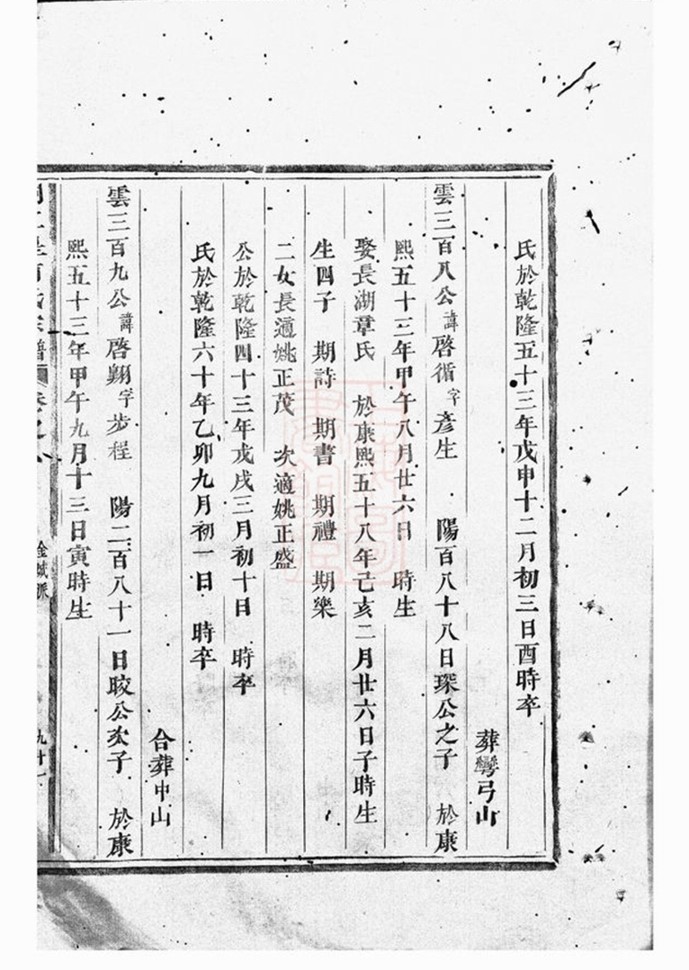 氏於乾隆五十三年戊申十二月初三日酉時卒
葬彎弓山
雲三百八公諱啓循字彥生 陽百八十八日琛公之子 於康
熙五十三年甲午八月廿六日 時生
娶長湖章氏 於康熙五十八年己亥二月廿六日子時生
生四子 期詩 期書 期禮 期樂
二女長適姚正茂 次適姚正盛
公於乾隆四十三年戊戌三月初十日 時卒
氏於乾隆六十年乙卯九月初一日 時卒
合葬中山
雲三百九公諱啓翔字步程 陽二百八十一日晈公次子 於康
熙五十三年甲午九月十三日寅時生